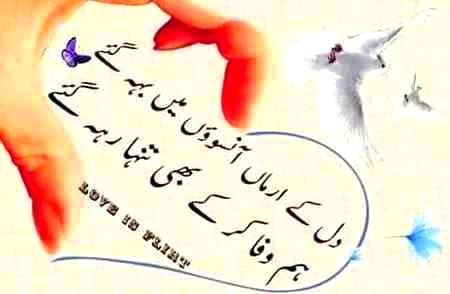 دل کے ارماں آنسوؤں میں بہہ گئے
ہم وفا کر کے بھی تنہا رہہ گئے
LOVE IS FLIRT